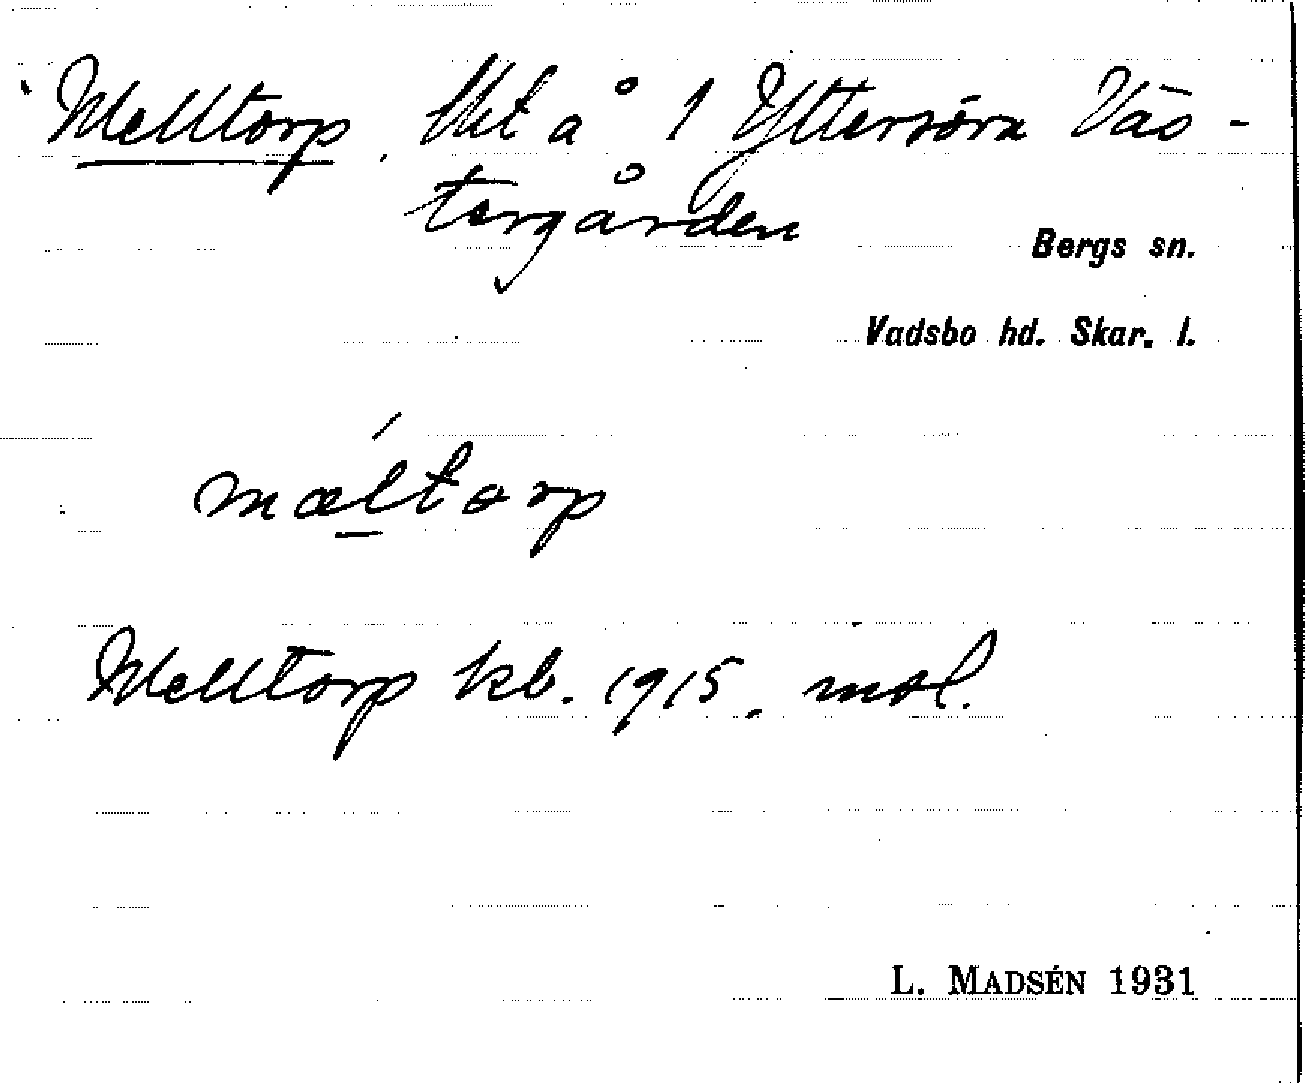 Melltorp. lht å 1 Yttersörn Väs-
tergården
Bergs sn.
Vadsbo hd. Skar. l.
mæ̀ltorp
Melltorp kb. 1915. msl.
L. MADSÉN 1931